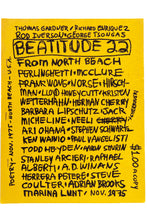 THOMAS GARDNER / RICHARD ENRIQUEZ
ROD IVERSON / GEORGE TSONGAS
BEATITUDE 22
FROM NORTH BEACH
FERLINGHETTI · McCLURE
HIRSCH-
MAN · LLOYD HOWE · CUTT · KRISTEN
WETTERHAHN · HERMAN CHERRY
BARBARA LIPSCHUTZ · JACK
MICHELINE · NEELI CHERRY
ARI OHANA · STEPHEN SCHWARTZ
KEN WAINIO · PAUL VANGELISTI
TODD HAYDEN · AARON SHURIN
STANLEY ARCIERI · RAPHAEL
ALBERTI · A.D. WINANS
HERRERA · PETERS · STEVE
COULTER · ADRIAN BROOKS
MARINA LUNT / NOV. 1975
POETRY - NOV. 1975 - NORTH BEACH - U.S.A.
$1.00 a copy